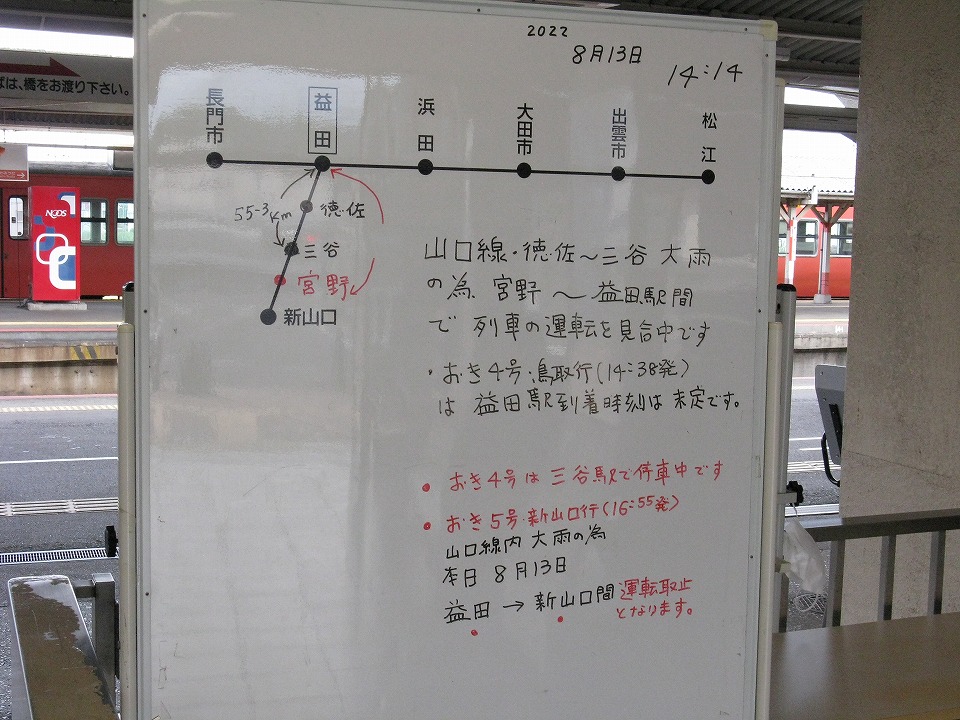 2022
8月13日
14:14
ば、橋をお渡り下さい。
長門市
益田
浜田
大田市
出雲市
松江
55-3Km
徳佐
三谷
宮野
新山口
NGDS
山口線・徳佐〜三谷 大雨
の為、宮野 〜 益田駅間
で 列車の運転を見合中です
・おき4号・鳥取行(14:38発)
は 益田駅到着時刻は 未定です。
・おき4号は 三谷駅で停車中です
・おき5号・新山口行(16:55発)
山口線内 大雨の為
本日 8月13日
益田 → 新山口間 運転取止
となります。